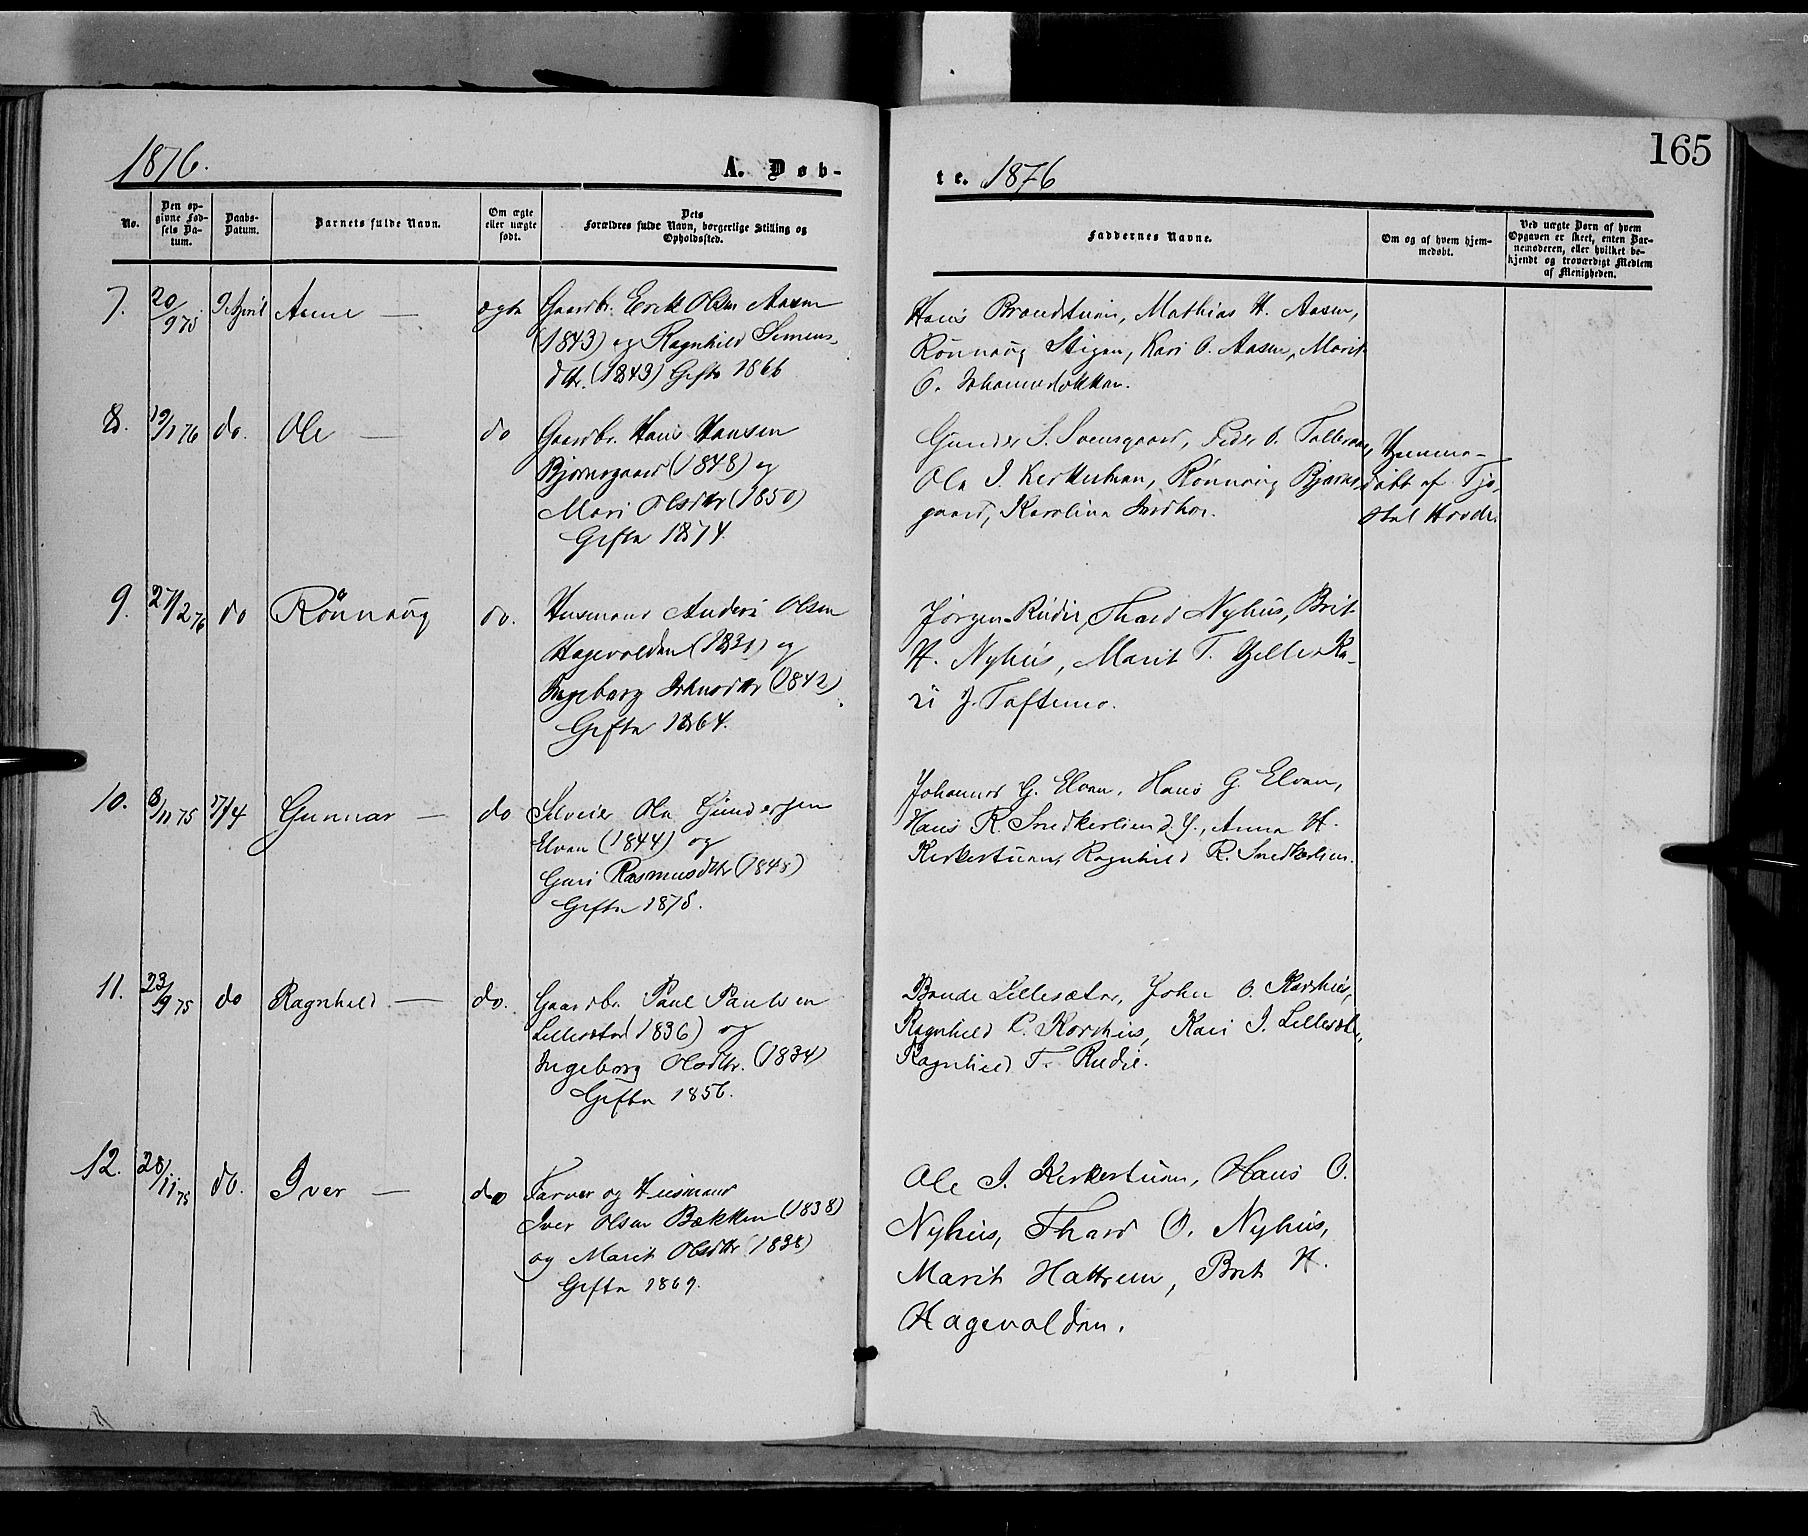 165
1876.
A. Døb-
te. 1876
No.
Den op-
givne Fød-
sels Da-
tum.
Daabs-
Datum.
Barnets fulde Navn.
Om ægte
eller uægte
født.
Dets
Forældres fulde Navn, borgerlige Stilling og
Opholdssted.
Faddernes Navne.
Om og af hvem hjem-
medøbt.
Ved uægte Børn af hvem
Opgaven er skeet, enten Bar-
nemoderen, eller hvilket be-
kjendt og troværdigt Medlem
af Menigheden.
7. 20/9 75 9 April Anne — ægte Gaardbr. Erik Olsen Aasen
(1843) og Ragnhild Simens-
dtr. (1843) Gifte 1866
Hans Brandstuen, Mathias H. Aasen,
Rönnaug Stigen, Kari O. Aasen, Marit
O.
8. 19/1 76 do. Ole — do Gaardbr. Hans Hansen
Bjørnsgaard (1848) og
Mari Olsdtr (1850)
Gifte 1874.
Gunder S. Svensgaard, Peder O.
Ole I. Kirkestuen, Rönnaug Bjørns-
gaard, Karoline
Hjemme-
døbt af Tjo-
stol Hovde.
9. 27/2 76 do Rönnaug do. Husmand Anders Olsen
Hagevolden (1831) og
Ingeborg Johnsdtr (1842)
Gifte 1864.
Jörgen Rudie, Thord Nyhus, Brit
H. Nyhus, Marit T. Gjelle, Ka-
ri J. Toftemo.
10. 8/11 75 17/4 Gunnar — do Selveier Ole Gundersen
Elven (1844) og
Guri Rasmusdtr (1848)
Gifte 1875.
Johannes G. Elven, Hans G. Elven,
Hans R. Snedkerlien d.Y., Anne H.
Kirkestuen, Ragnhild R. Snedkerlien.
11. 23/9 75 do Ragnhild — do. Gaardbr. Paul Paulsen
Lillesæter (1836) og
Ingeborg Olsdtr. (1834)
Gifte 1856.
Lillesæter, John O. Korshus,
Ragnhild P. Korshus, Kari I. Lillesæter,
Ragnhild T. Rudie.
12. 28/11 75 do. Iver — do Farver og Husmand
Iver Olsen Bækken (1838)
og Marit Olsdtr (1838)
Gifte 1869.
Ole I. Kirkestuen, Hans O.
Nyhus, Thord O. Nyhus,
Marit Hattrem, Brit H.
Hagevolden.